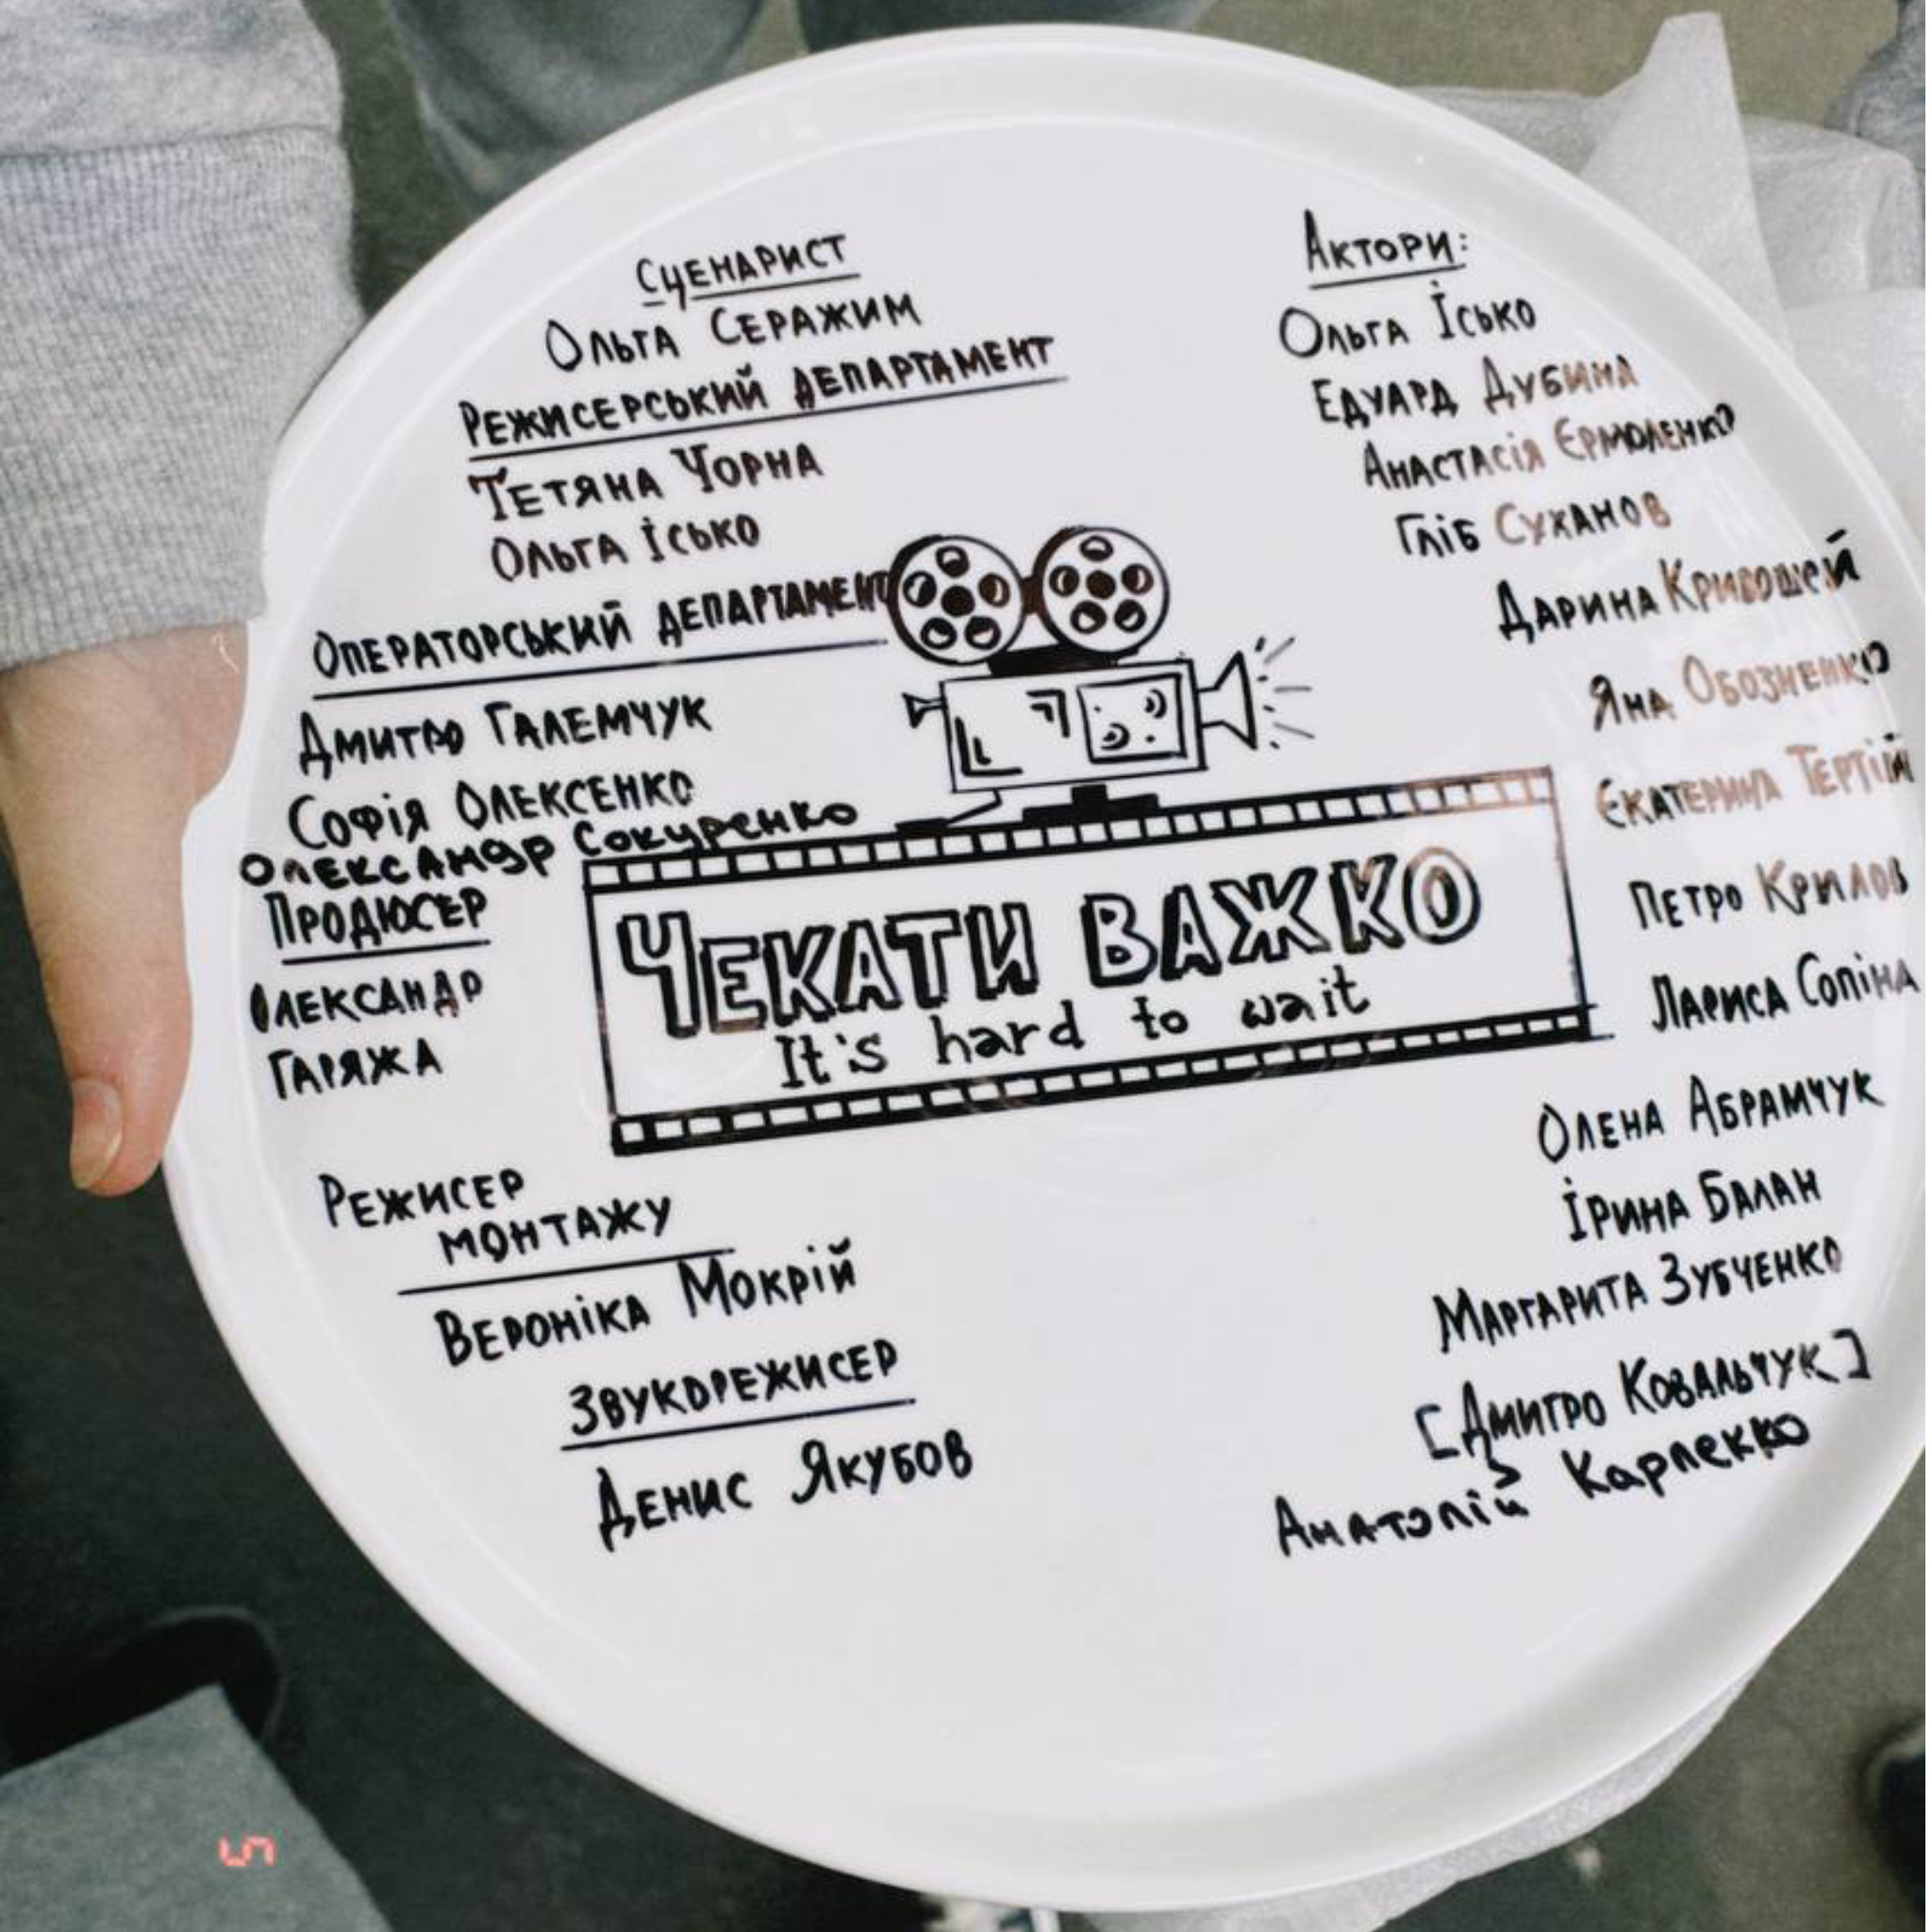 Сценарист
Ольга Серажим
Режисерський департамент
Тетяна Чорна
Ольга Ісько
Операторський департамент
Дмитро Галемчук
Софія Олексенко
Олександр Сокуренко
Продюсер
Олександр
Гаряжа
Режисер
монтажу
Вероніка Мокрій
Звукорежисер
Денис Якубов
Чекати важко
It's hard to wait
Актори:
Ольга Ісько
Едуард Дубина
Анастасія Єрмоленко
Гліб Суханов
Дарина Кривошей
Яна Обозненко
Єкатерина Тертій
Петро Крилов
Лариса Сопіна
Олена Абрамчук
Ірина Балан
Маргарита Зубченко
[Дмитро Ковальчук]
Анатолій Карпекко
5